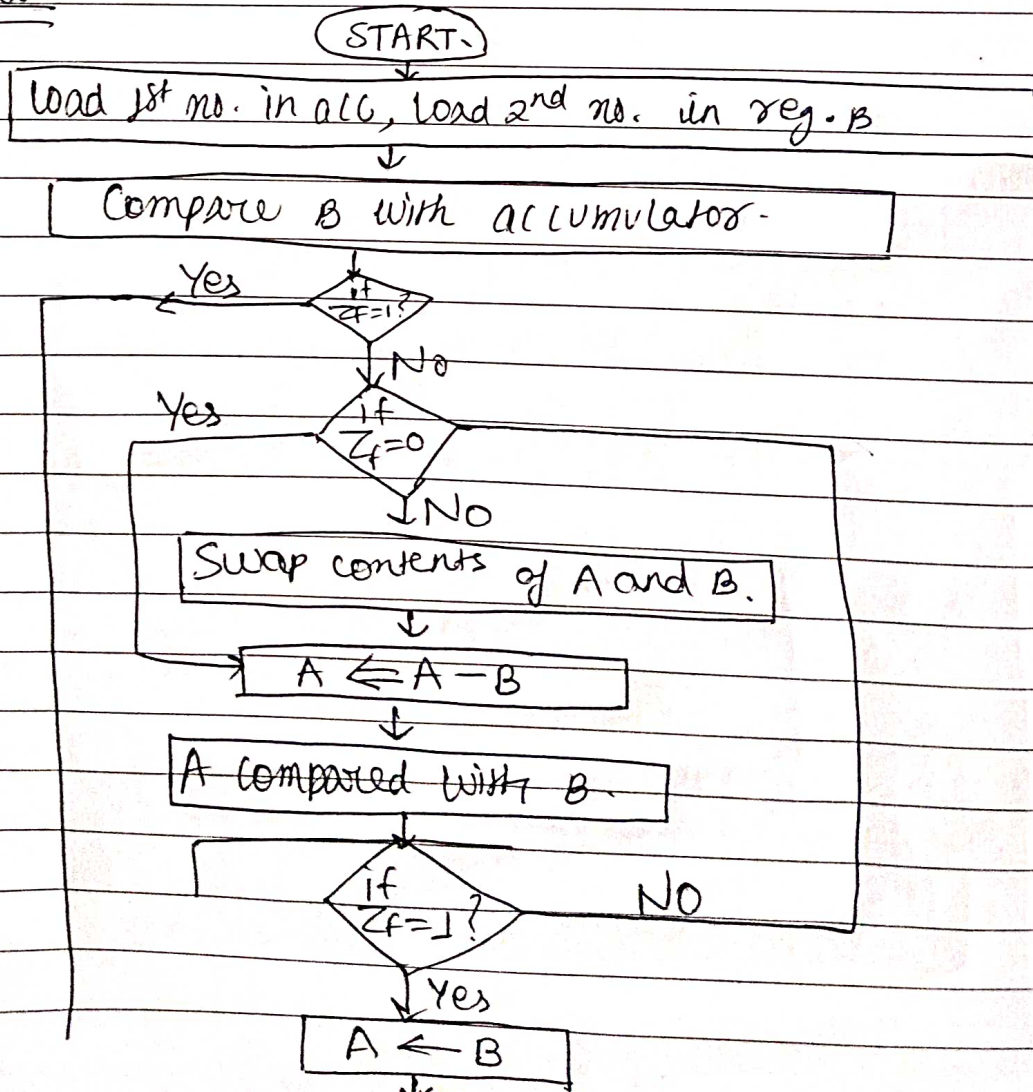 START.
Load 1st no. in acc, Load 2nd no. in reg. B
Compare B with accumulator.
Yes
if
ZF=1?
No
Yes
if
Zf=0
NO
Swap contents of A and B.
A ⇐ A - B
A compared with B.
if
ZF=1?
NO
Yes
A ← B